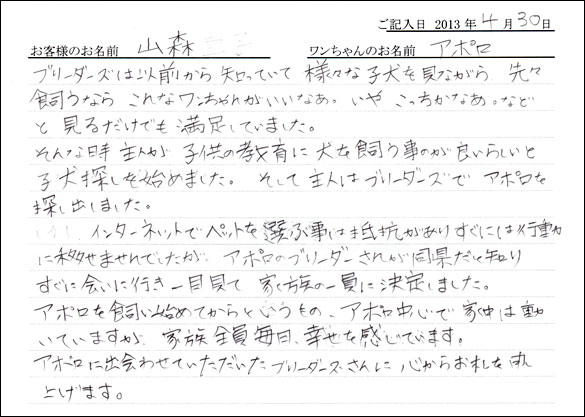 ご記入日 2013年4月30日
お客様のお名前 山森 ワンちゃんのお名前 アポロ
ブリーダーズは以前から知っていて 様々な子犬を見ながら 先々
飼うなら こんなワンちゃんがいいなあ。いや こっちかなあ。など
と 見るだけでも 満足していました。
そんな時 主人が 子供の教育に 犬を飼う事のが良いらしいと
子犬探しを始めました。 そして主人はブリーダーズで アポロを
探し出しました。
インターネットでペットを選ぶ事は抵抗がありすぐには行動
に移せませんでしたが アポロのブリーダーさんが同県だと知り
すぐに会いに行き 一目見て 家族の一員に決定しました。
アポロを飼い始めてからというもの、アポロ中心で 家中は動
いていますが、家族全員毎日、幸せを感じています。
アポロに出会わせていただいた ブリーダーズさんに 心からお礼を申し
上げます。